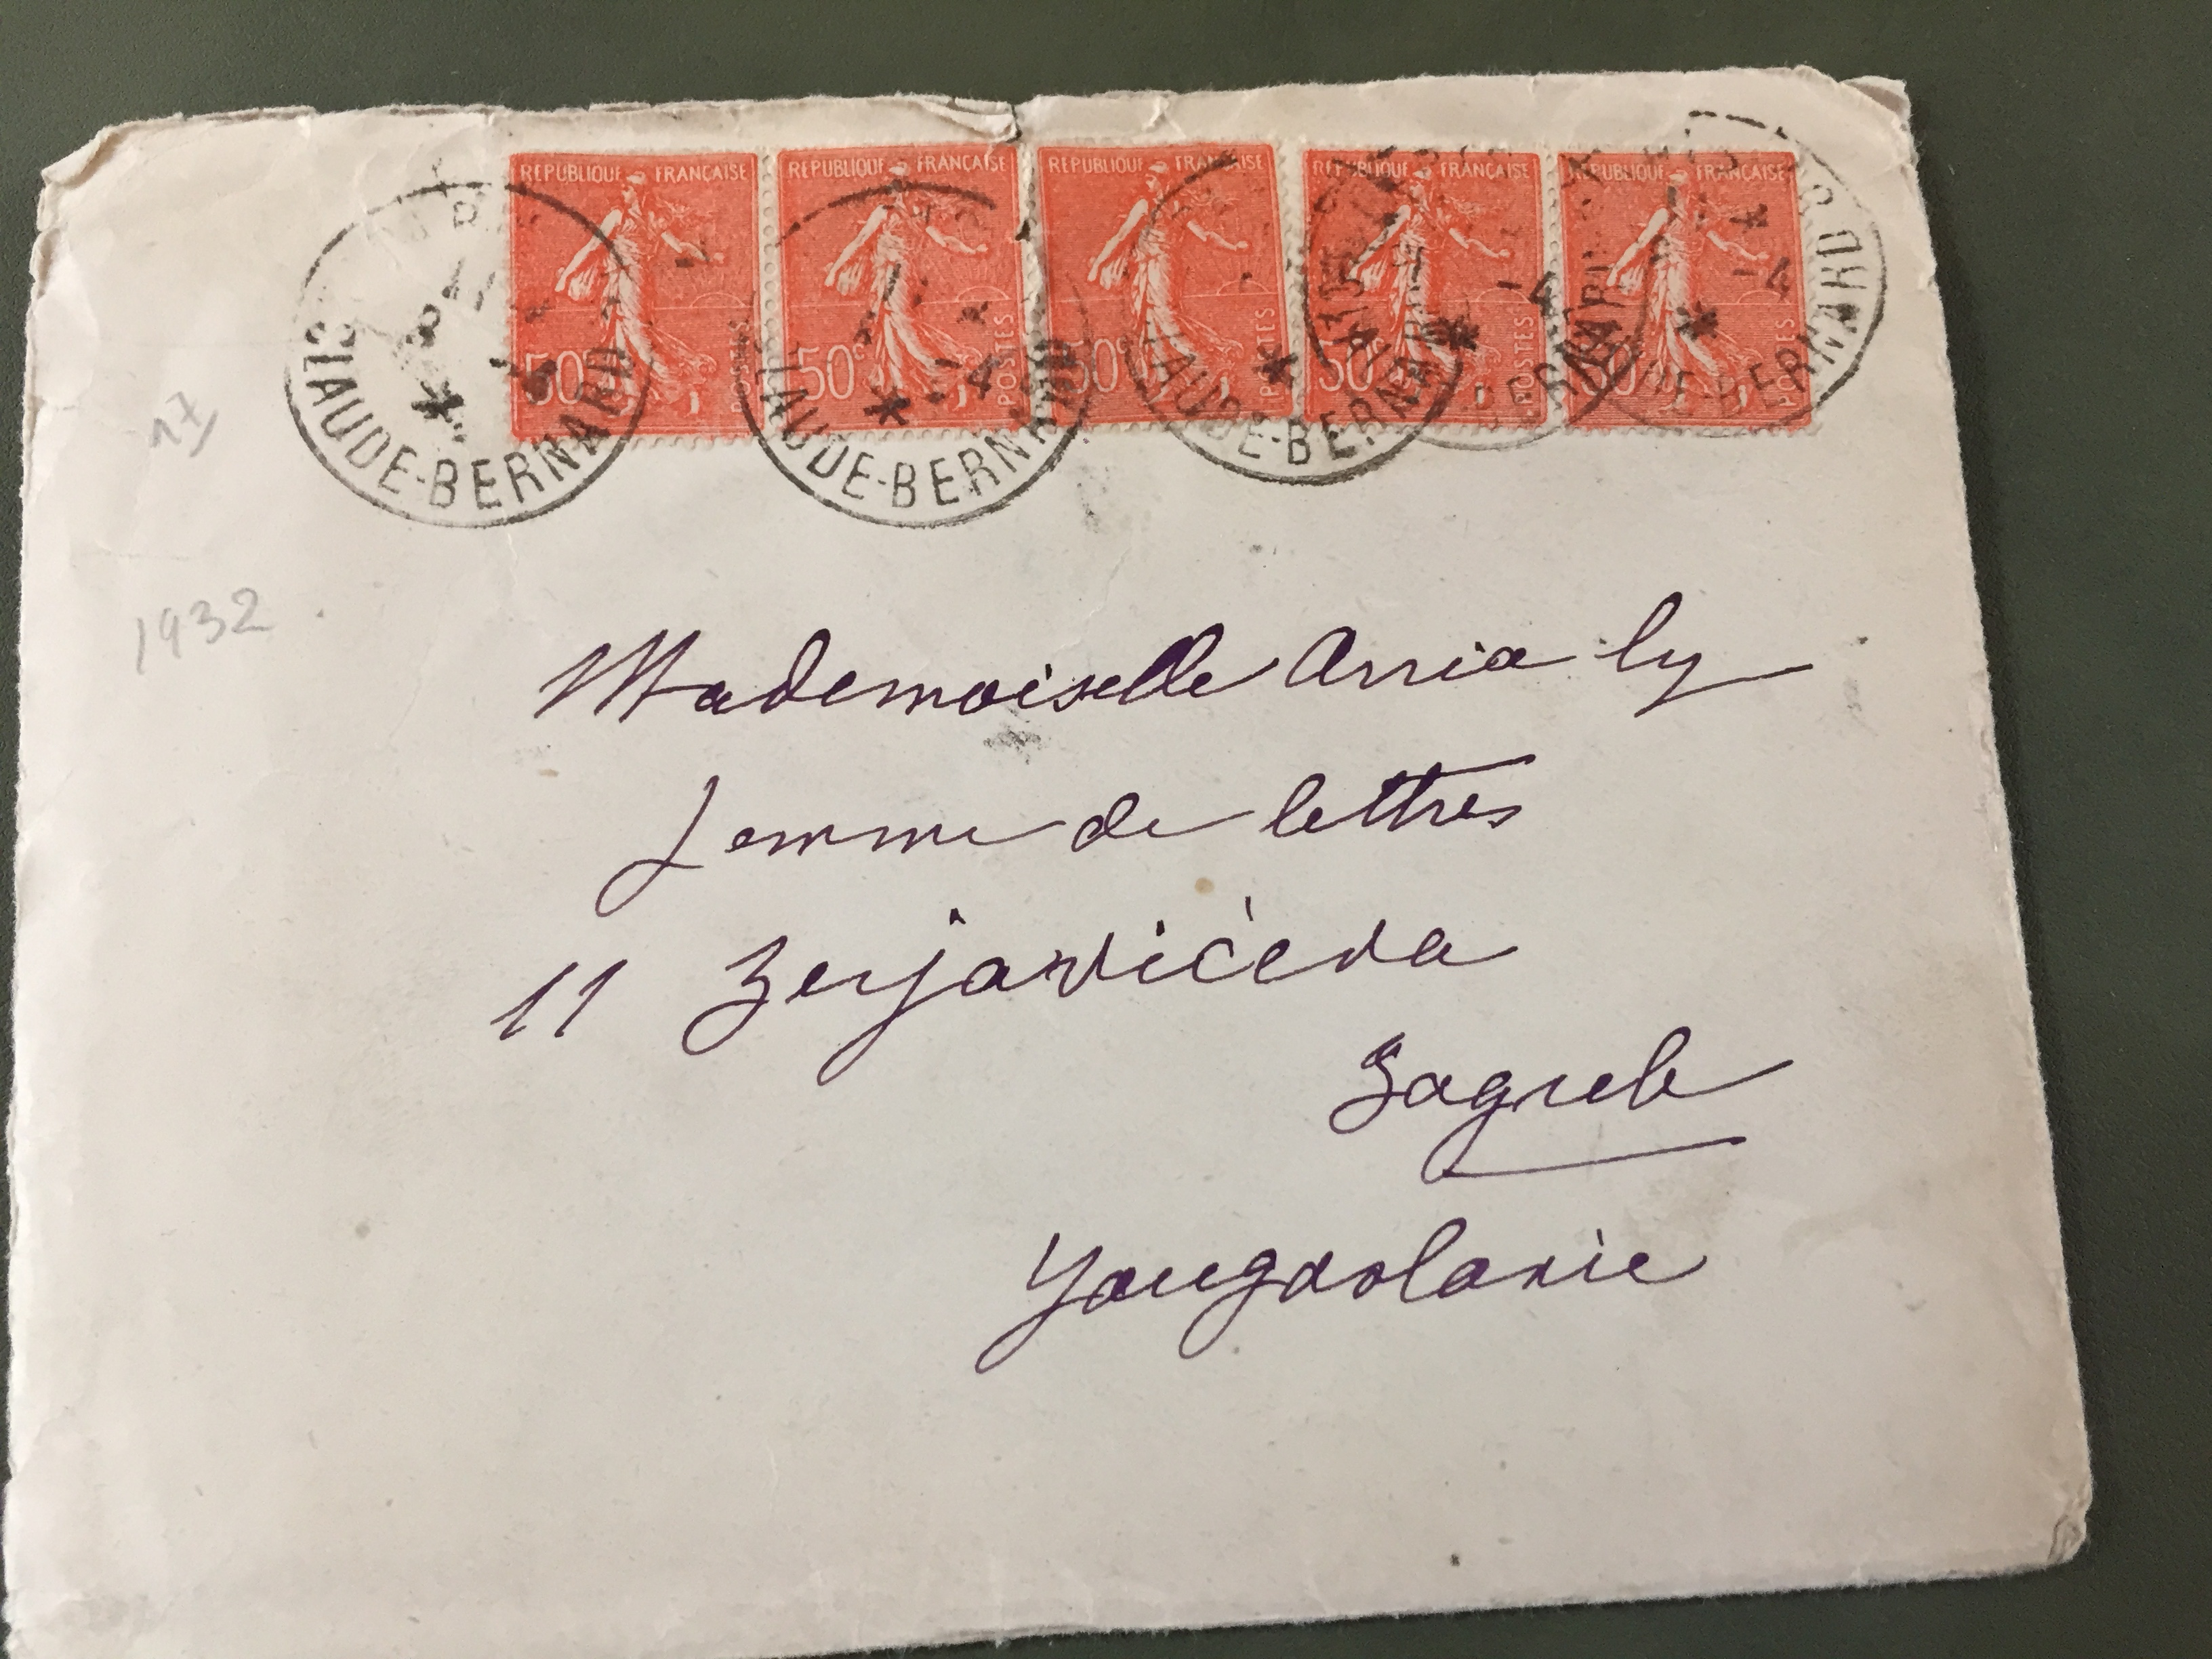 REPUBLIQUE FRANÇAISE REPUBLIQUE FRANÇAISE REPUBLIQUE FRANÇAISE REPUBLIQUE FRANÇAISE REPUBLIQUE FRANÇAISE
50c POSTES 50c POSTES 50c POSTES 50c POSTES 50c POSTES
CLAUDE-BERNARD CLAUDE-BERNARD CLAUDE-BERNARD CLAUDE-BERNARD CLAUDE-BERNARD
17
1932
Mademoiselle Arria Ly
femme de lettres
11 Zerjavićeva
Zagreb
Yougoslavie